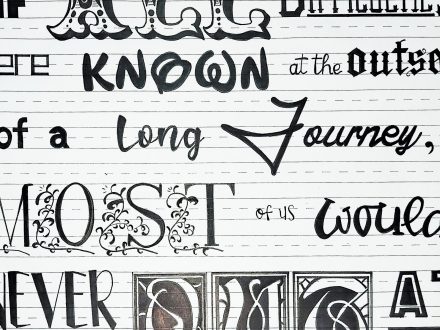 ALL DIFFICULTIE
ere KNOWN at the outse
of a Long Journey,
MOST of us would
NEVER OUT AT